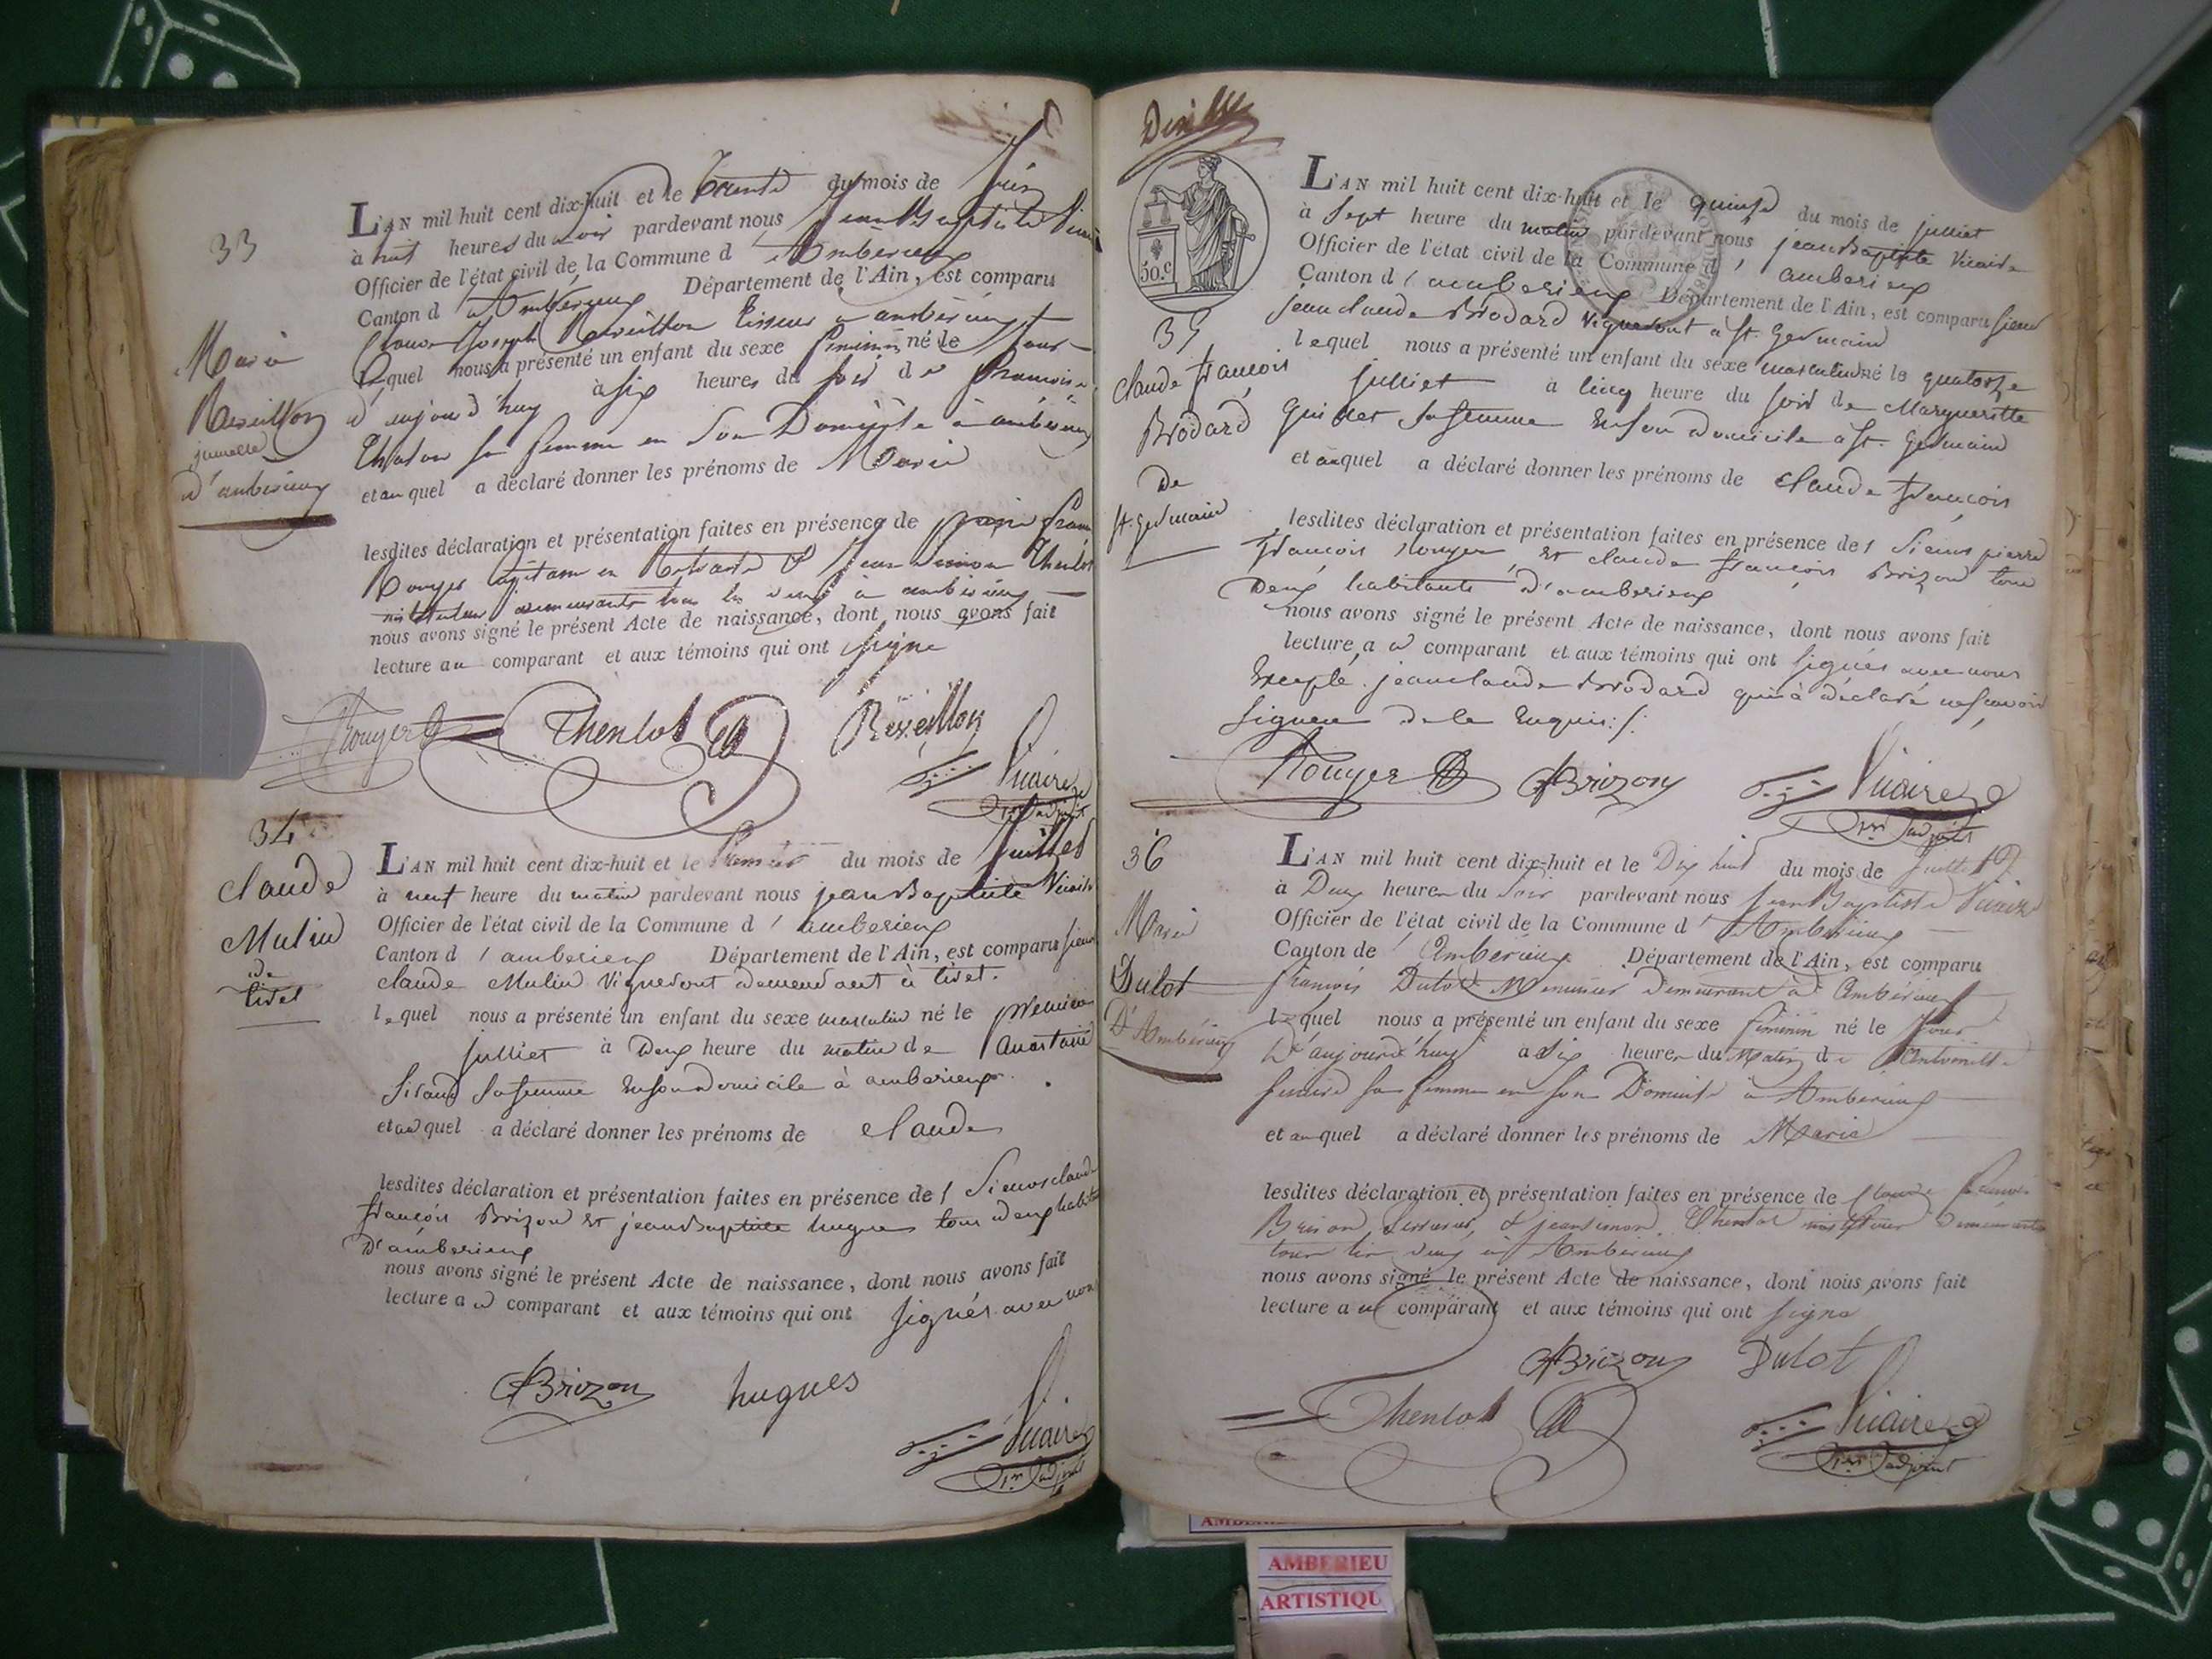 33
Marie
Reveillon
jumelle
d'amberieux
L'AN mil huit cent dix-huit et le trente du mois de Juin
à huit heures du soir pardevant nous Jean Baptiste Vicaire
Officier de l'état civil de la Commune d' Amberieux
Canton d' Amberieux Département de l'Ain, est comparu
Claude Joseph Reveillon tisseur a amberieux
lequel nous a présenté un enfant du sexe féminin né le jour
d'aujourd'huy à six heures du soir de Françoise
sa femme en son Domicile à amberieux
et au quel a déclaré donner les prénoms de Marie
lesdites déclaration et présentation faites en présence de pierre françois
Rouyer capitaine en Retraite & Jean Simon Thenlot
instituteur demeurants tous les deux à amberieux
nous avons signé le présent Acte de naissance, dont nous avons fait
lecture au comparant et aux témoins qui ont signé
Rouyer Thenlot Réveillon
Vicaire
1er adjoint
34
Claude
Mulin
de
tiret
L'AN mil huit cent dix-huit et le Premier du mois de Juillet
à neuf heure du matin pardevant nous jean Baptiste Vicaire
Officier de l'état civil de la Commune d' amberieux
Canton d' amberieux Département de l'Ain, est comparu sieur
claude Mulin Vigneront demeurant à tiret.
lequel nous a présenté un enfant du sexe masculin né le premier
julliet à Deux heure du matin de Anastasie
Sirand sa femme En son domicile à amberieux.
et au quel a déclaré donner les prénoms de claude
lesdites déclaration et présentation faites en présence de s Sieurs claude
françois Brizon et jean Baptiste hugues tous deux habitants
D'amberieux
nous avons signé le présent Acte de naissance, dont nous avons fait
lecture a u comparant et aux témoins qui ont signés avec nous
Brizon hugues
Vicaire
1er adjoint
50.c
35
claude françois
Brodard
De
st. germain
L'AN mil huit cent dix-huit et le quinze du mois de julliet
à sept heure du matin pardevant nous jean Baptiste Vicaire
Officier de l'état civil de la Commune d' amberieux
Canton d' amberieux Département de l'Ain, est comparu sieur
jean claude Brodard Vigneront à st. germain
lequel nous a présenté un enfant du sexe masculin né le quatorze
julliet à cinq heure du soir de Margueritte
sa femme En son domicile à st. germain
et auquel a déclaré donner les prénoms de claude françois
lesdites déclaration et présentation faites en présence de s Sieurs pierre
françois rouyer et claude françois Brizon tous
Deux habitants d'amberieux
nous avons signé le présent Acte de naissance, dont nous avons fait
lecture a u comparant et aux témoins qui ont signés avec nous
Excepté jean claude Brodard qui à déclaré ne savoir
signer de ce Enquis
Rouyer Brizon Vicaire
1er adjoint
36
Marie
Dulot
D'Amberieux
L'AN mil huit cent dix-huit et le Dix huit du mois de Juillet
à Deux heures du soir pardevant nous Jean Baptiste Vicaire
Officier de l'état civil de la Commune d' Amberieux
Canton de Amberieux Département de l'Ain, est comparu
François Dulot Menuisier demeurant à Amberieux
lequel nous a présenté un enfant du sexe féminin né le jour
D'aujourd'huy a six heures du Matin de Antoinette
sa femme en son Domicile à Amberieux
et au quel a déclaré donner les prénoms de Marie
lesdites déclaration et présentation faites en présence de Claude françois
Brison, & jean simon Thenlot demeurants
tous les deux à Amberieux
nous avons signé le présent Acte de naissance, dont nous avons fait
lecture au comparant et aux témoins qui ont signé
Brizon Dulot
Thenlot Vicaire
1er adjoint
AMBERIEU
ARTISTIQU